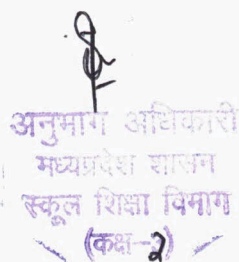 अनुभाग अधिकारी
मध्यप्रदेश शासन
स्कूल शिक्षा विभाग
(कक्ष-2)